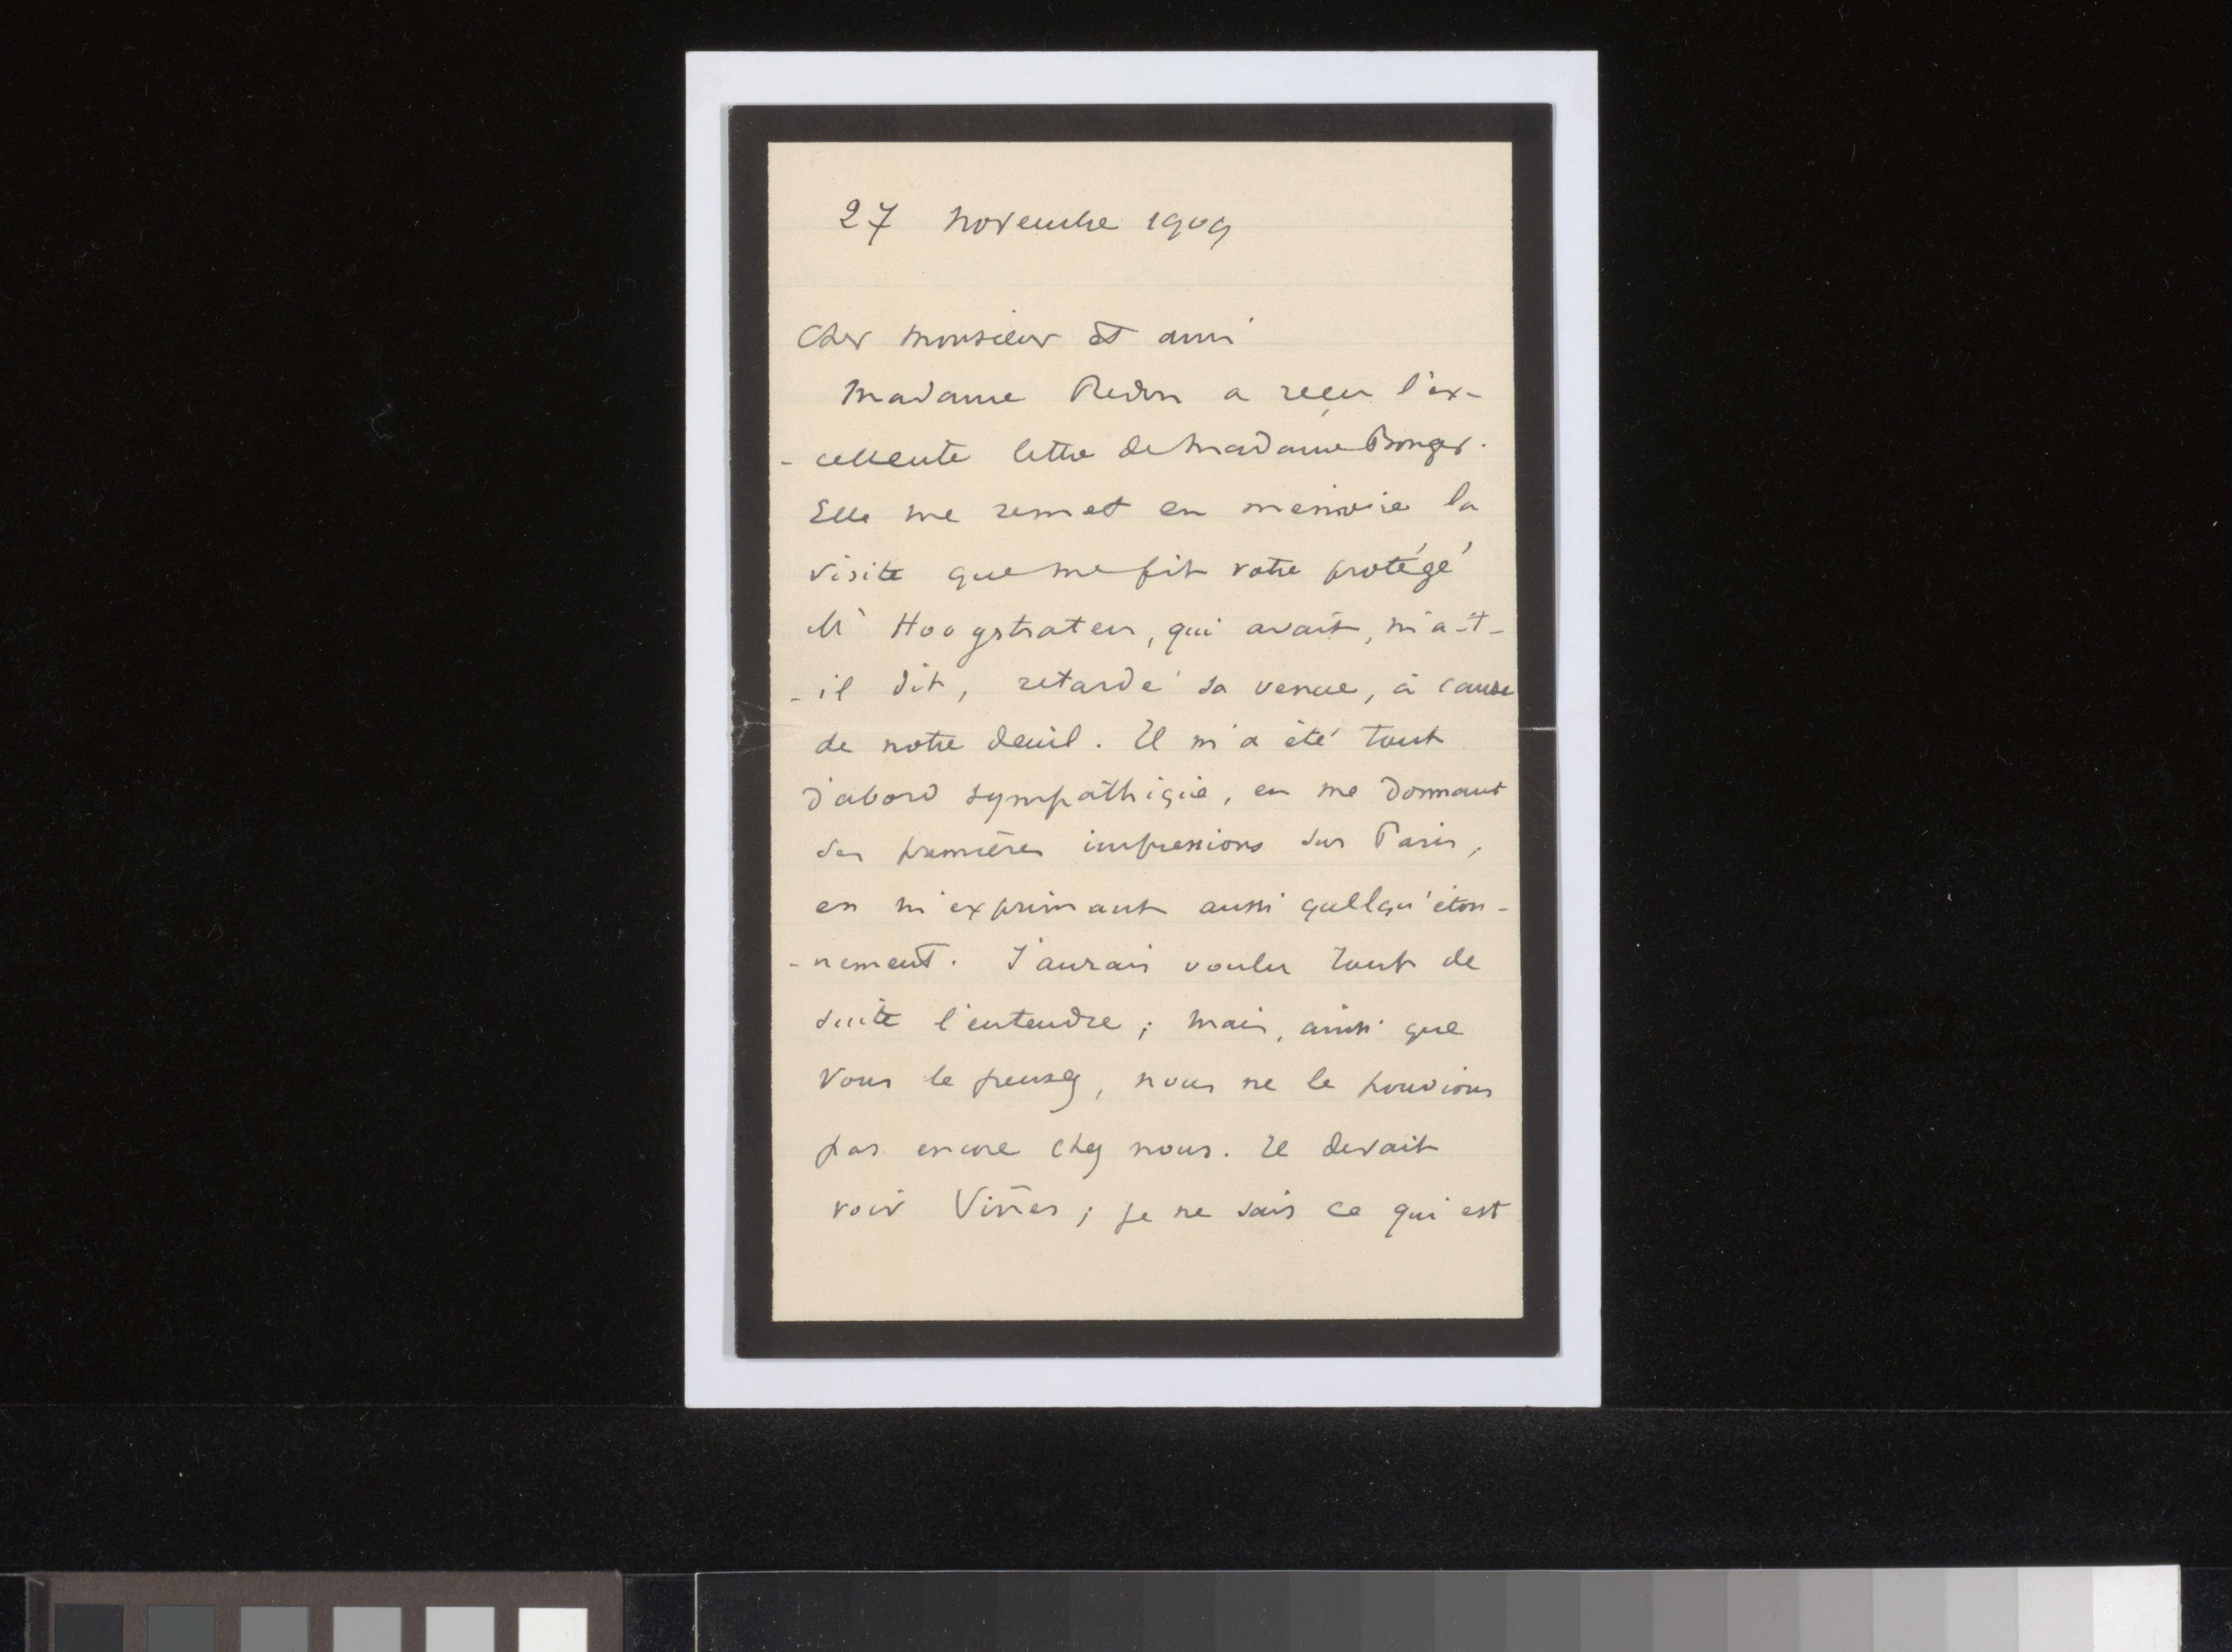 27 novembre 1909
Cher Monsieur et ami
Madame Redon a reçu l'ex-
- cellente lettre de Madame Bonger.
Elle me remet en mémoire la
visite que me fit votre protégé
Mr Hoogstraten, qui avait, m'a-t-
- il dit, retardé sa venue, à cause
de notre deuil. Il m'a été tout
d'abord sympathique, en me donnant
ses premières impressions sur Paris,
en m'exprimant aussi quelqu'éton-
- nement. J'aurais voulu tout de
suite l'entendre ; mais, ainsi que
vous le pensez, nous ne le pouvions
pas encore chez nous. Il devait
voir Viñes ; je ne sais ce qui est